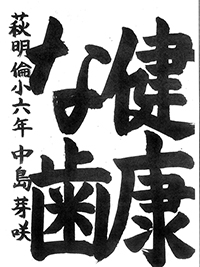 健康
な歯
萩明倫小六年 中島芽咲